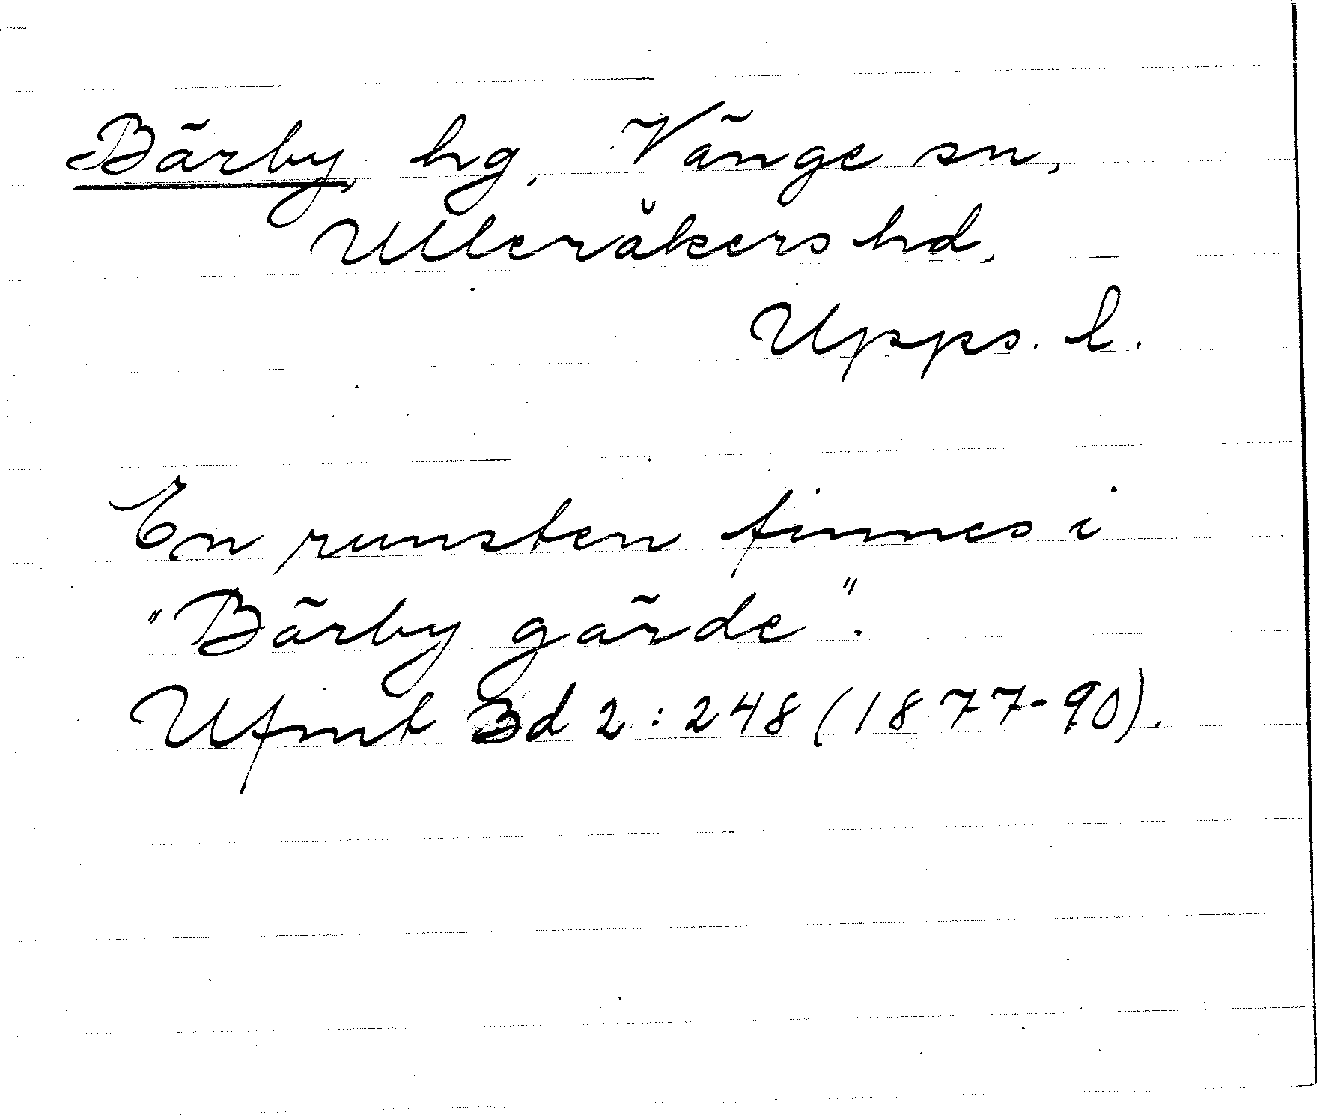 Bärby, hg, Vänge sn,
Ulleråkers hd,
Upps. l.
En runsten finnes i
"Bärby gärde".
Ufmt Bd 2: 248 (1877-90).